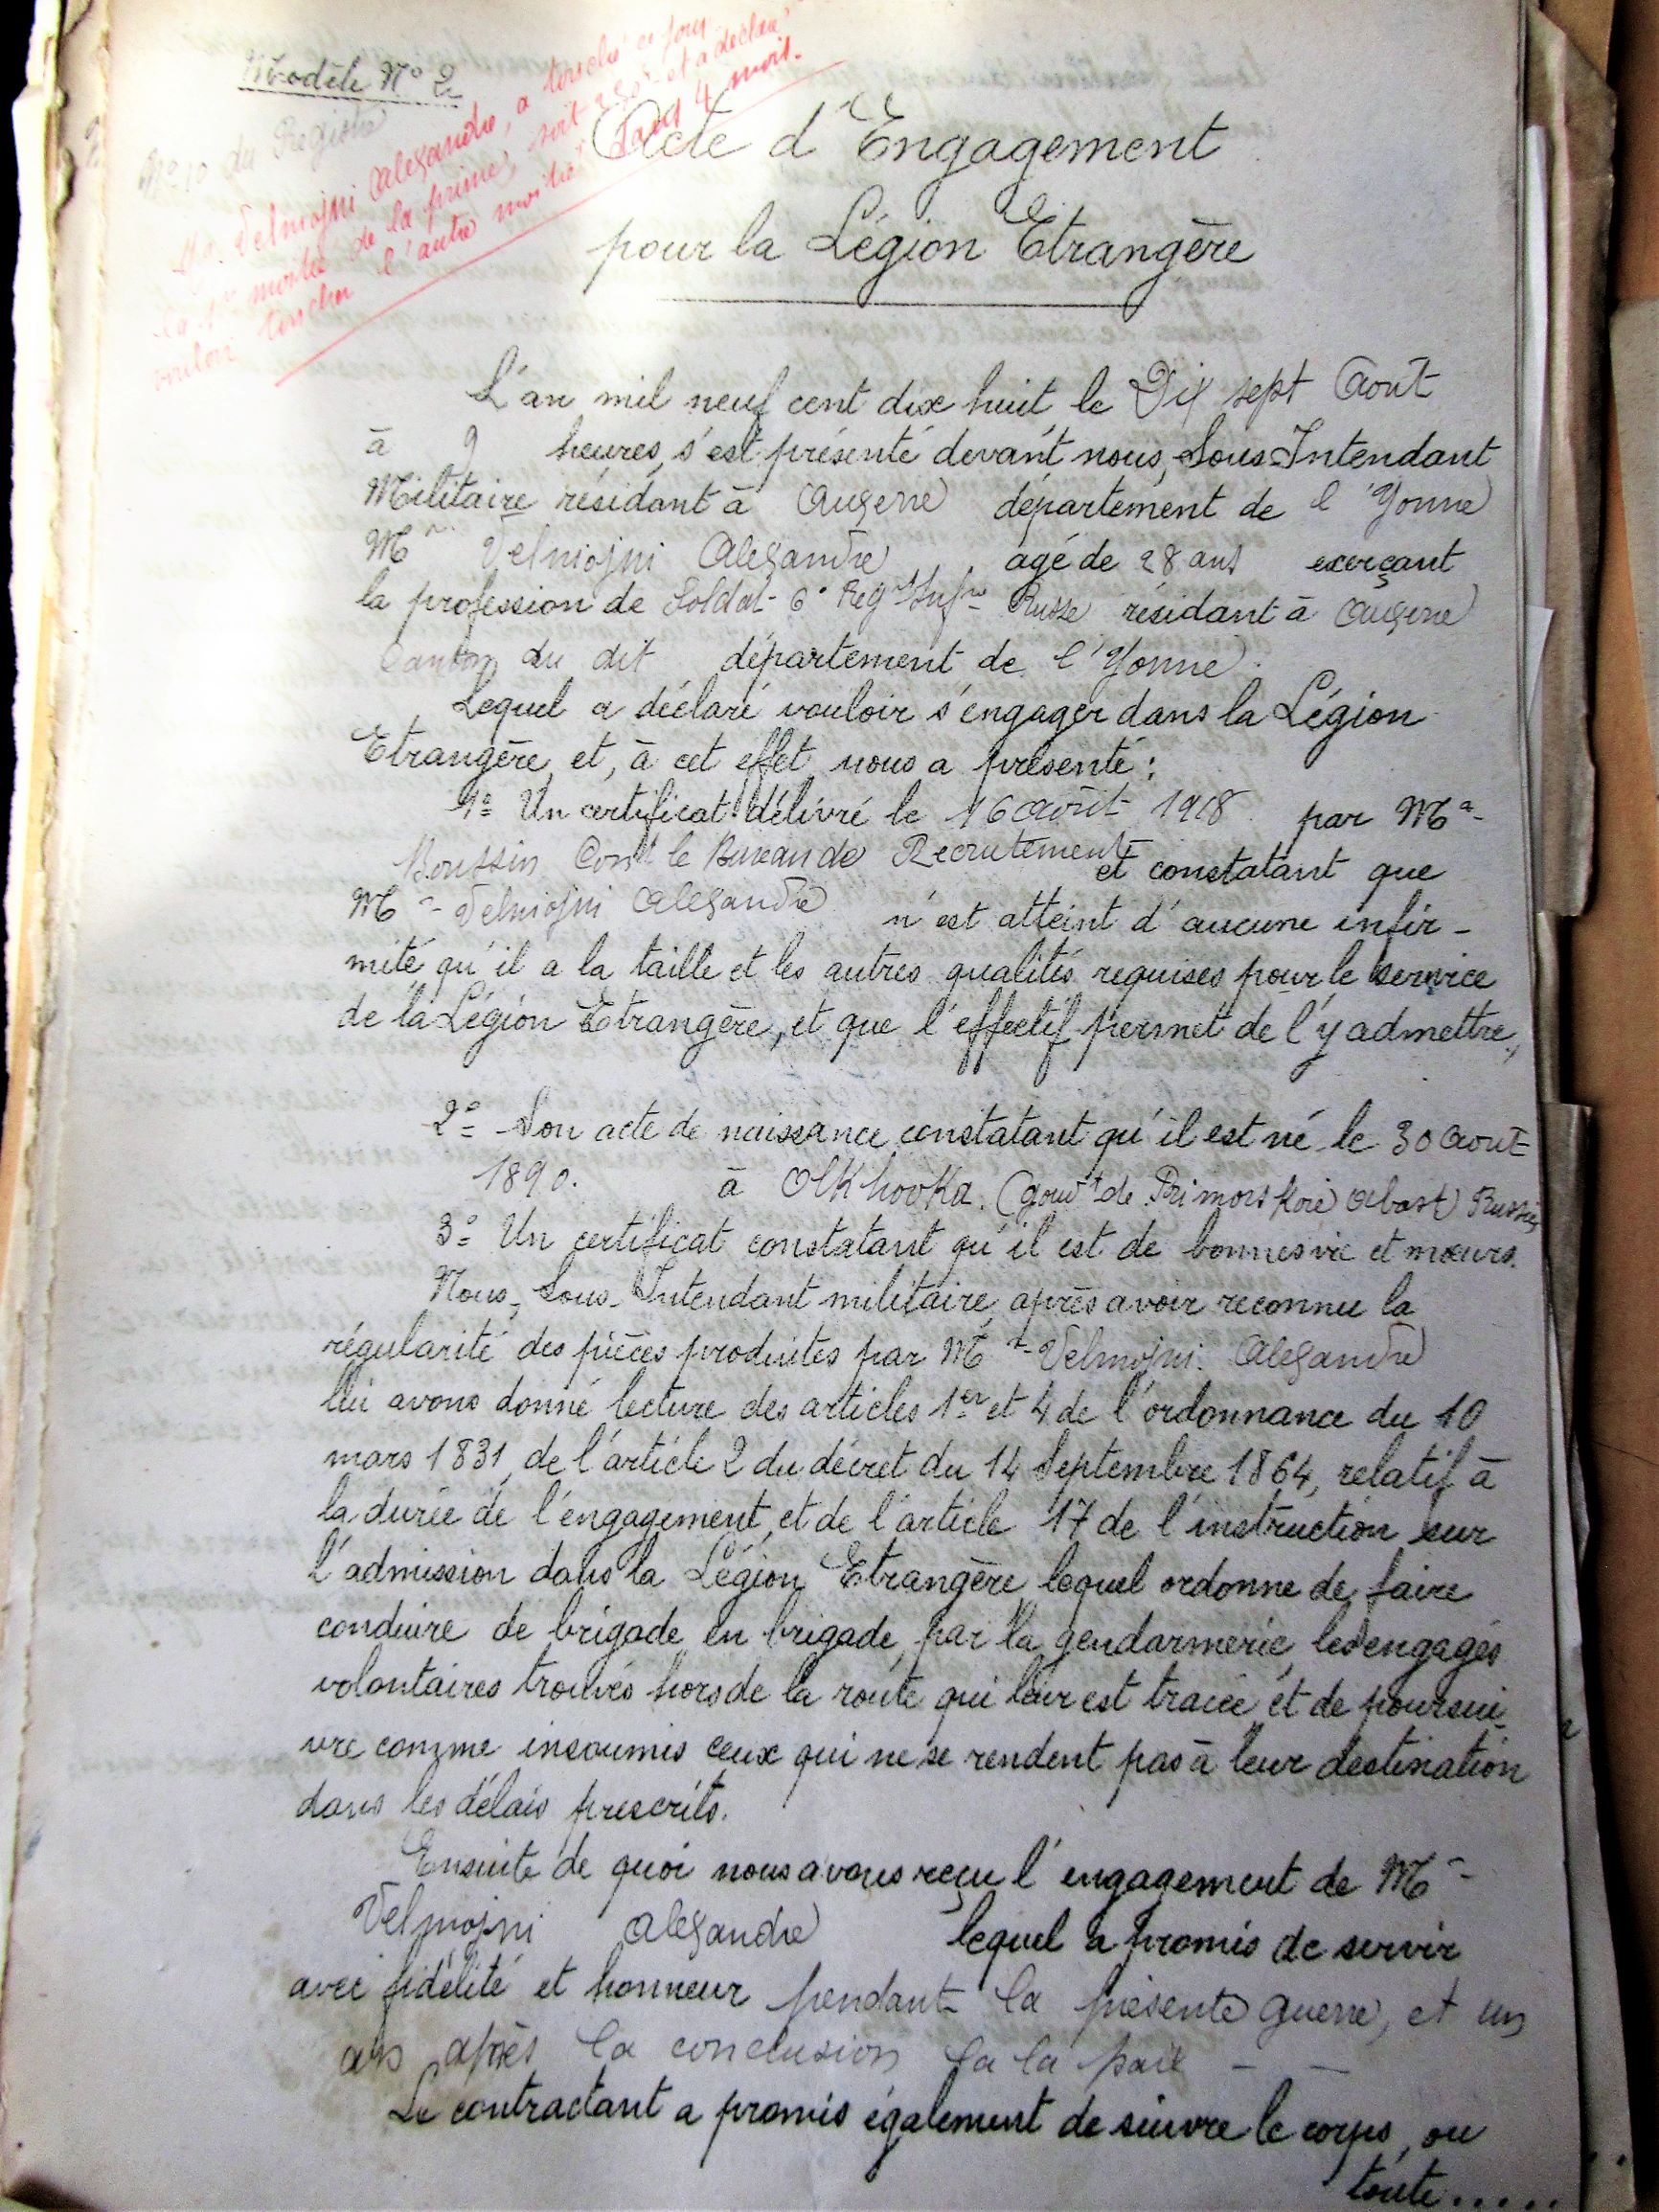 Modèle N° 2
N° 10 du Registre
Mr. Velmojni Alexandre, a touché ce jour
la 1re moitié de la prime, soit 250f et a déclaré
vouloir toucher l'autre moitié dans 4 mois.
Acte d'Engagement
pour la Légion Etrangère
L'an mil neuf cent dix huit, le Dix sept Aout
à 9 heures, s'est présenté devant nous, Sous-Intendant
Militaire résidant à Auxerre département de l'Yonne
Mr Velmojni Alexandre agé de 28 ans exerçant
la profession de Soldat 6e Regt Infie Russe résidant à Auxerre
Canton du dit département de l'Yonne.
Lequel a déclaré vouloir s'engager dans la Légion
Etrangère, et, à cet effet nous a présenté :
1° Un certificat délivré le 16 Août 1918 par Mr
Boussin Comt le Bureau de Recrutement et constatant que
Mr Velmojni Alexandre n'est atteint d'aucune infir-
mité, qu'il a la taille et les autres qualités requises pour le service
de la Légion Etrangère, et que l'effectif permet de l'y admettre,
2° Son acte de naissance constatant qu'il est né le 30 Aout
1890. à Olkhovka. (Gouvt de Primorskoïé Obast) Russie
3° Un certificat constatant qu'il est de bonnes vie et mœurs.
Nous, Sous-Intendant militaire, après avoir reconnu la
régularité des pièces produites par Mr Velmojni Alexandre
lui avons donné lecture des articles 1er et 4 de l'ordonnance du 10
mars 1831, de l'article 2 du décret du 14 Septembre 1864, relatif à
la durée de l'engagement, et de l'article 17 de l'instruction sur
l'admission dans la Légion Etrangère, lequel ordonne de faire
conduire de brigade en brigade, par la gendarmerie, les engagés
volontaires trouvés hors de la route qui leur est tracée et de poursui-
vre comme insoumis ceux qui ne se rendent pas à leur destination
dans les délais prescrits.
Ensuite de quoi nous avons reçu l'engagement de Mr
Velmojni Alexandre lequel a promis de servir
avec fidélité et honneur pendant la présente guerre, et un
an après la conclusion la la paix - -
Le contractant a promis également de suivre le corps, ou
toute.....